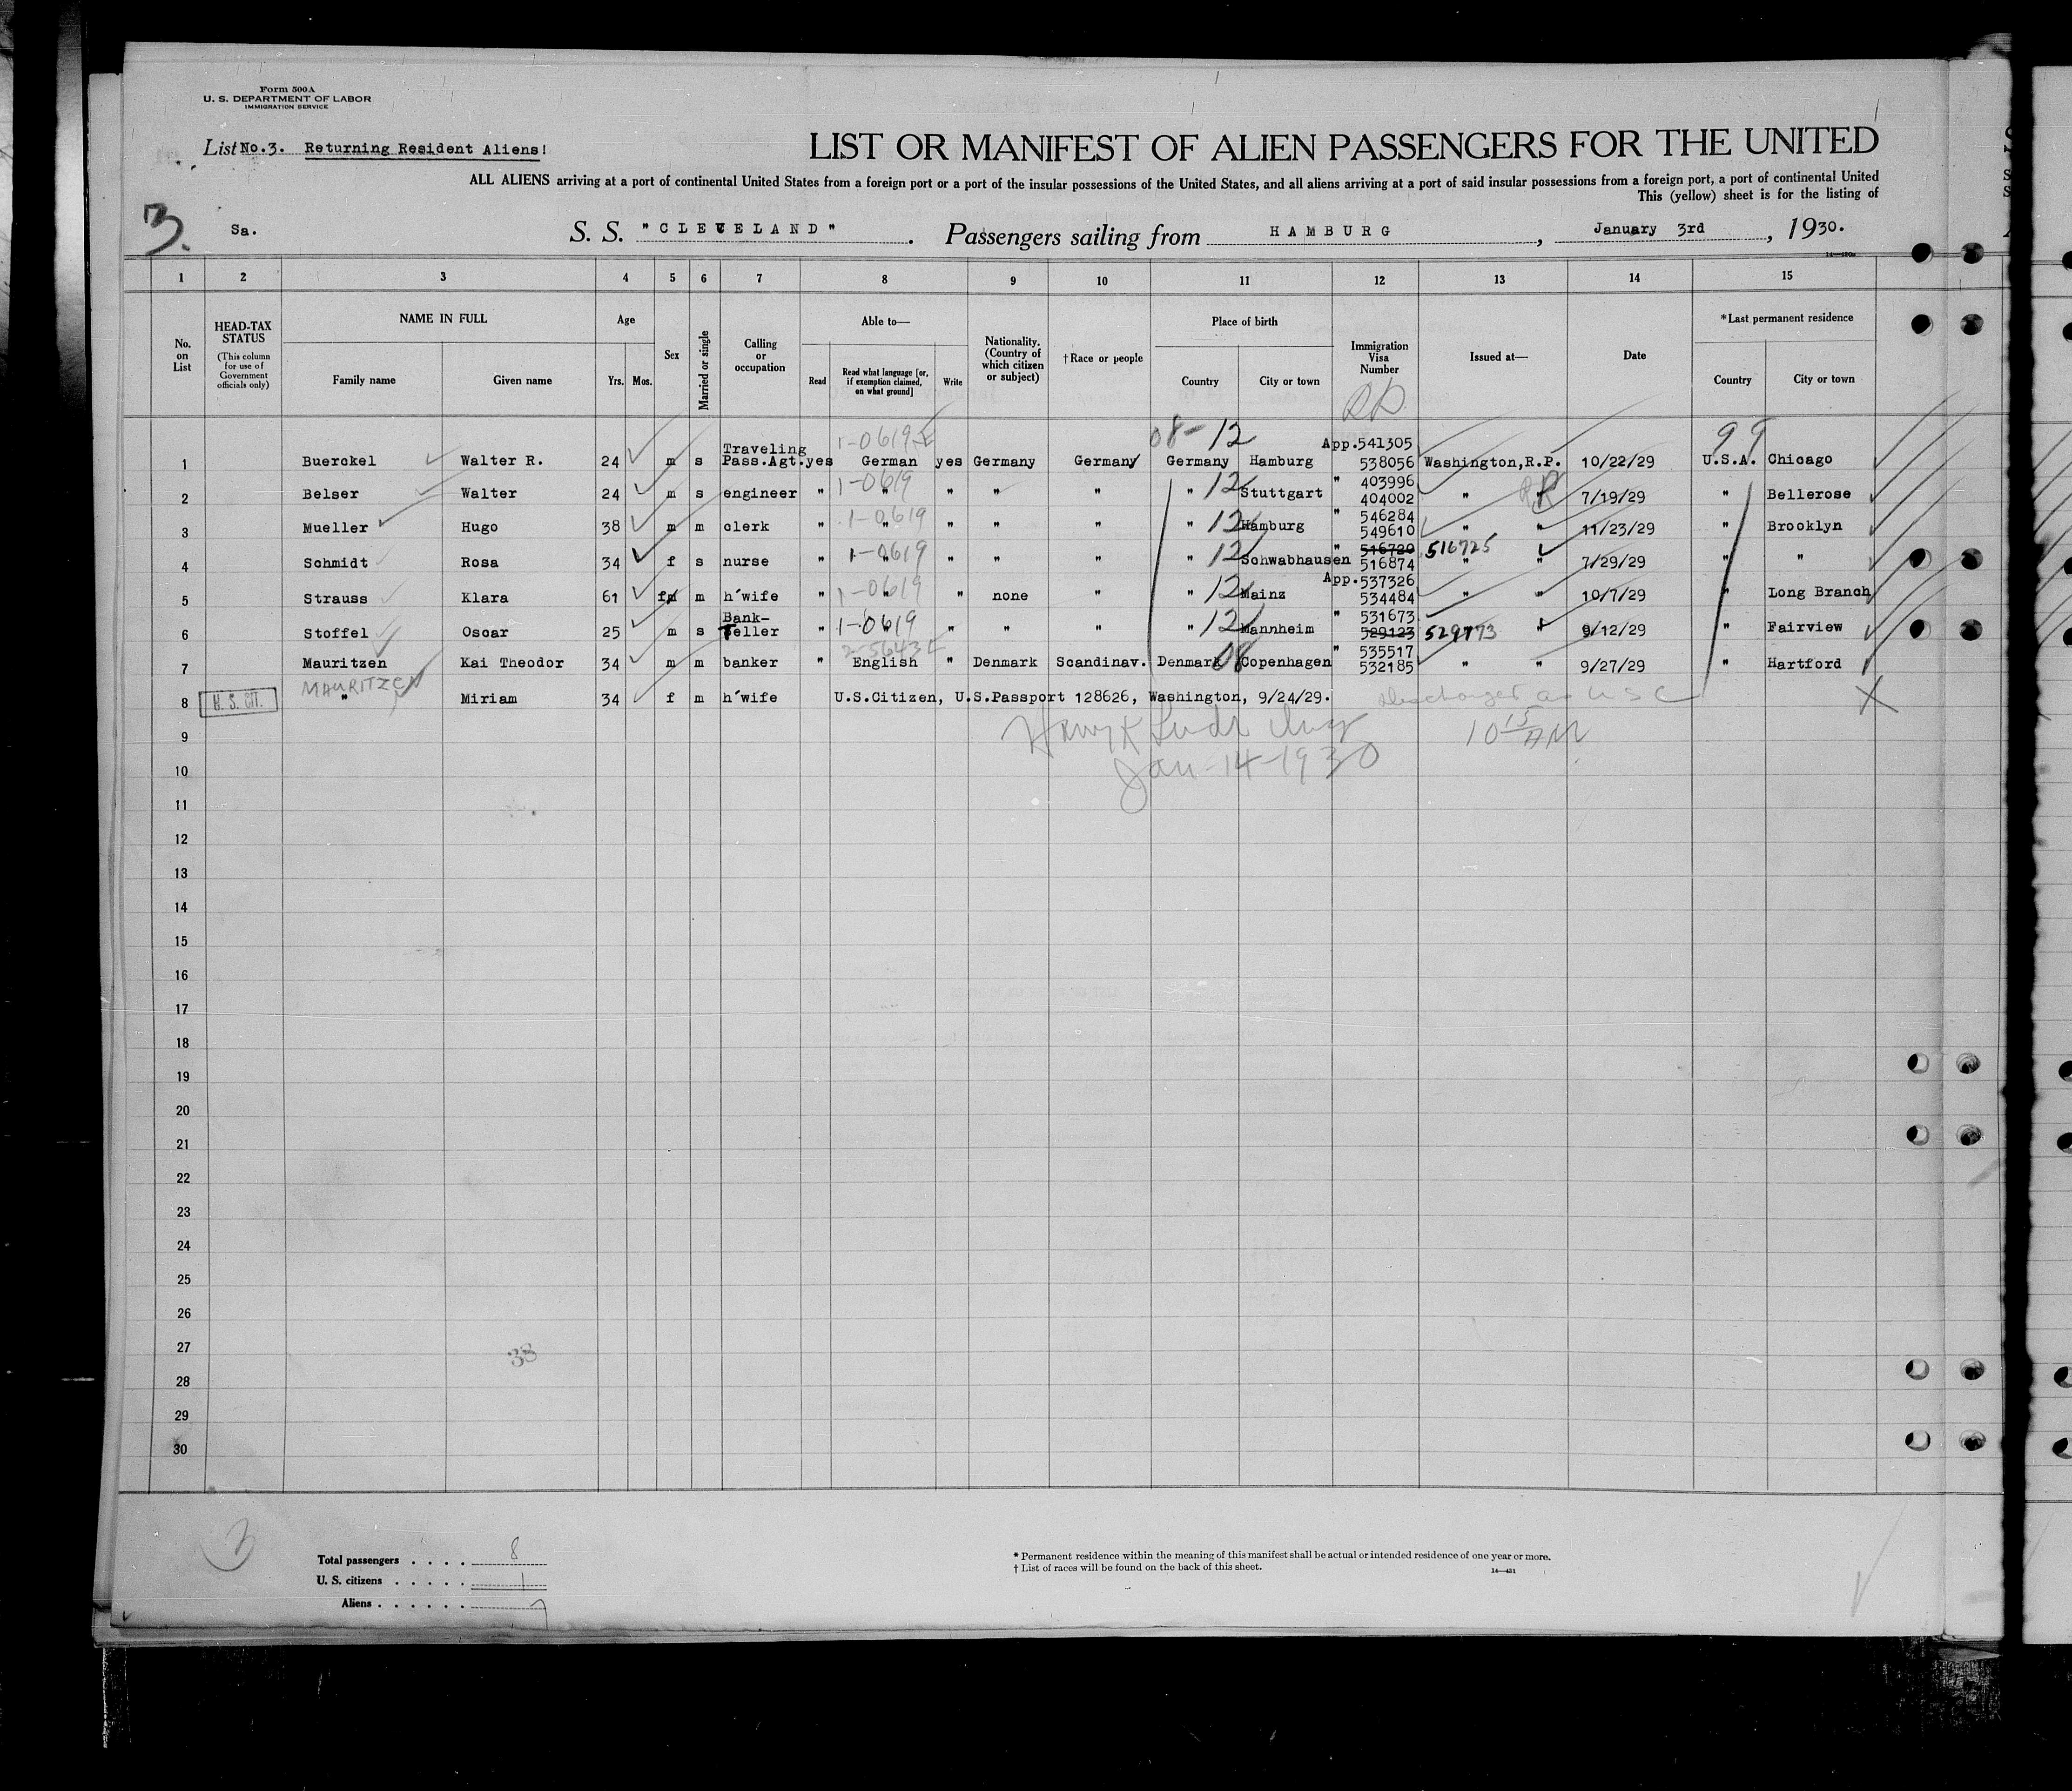 Form 500A
U. S. DEPARTMENT OF LABOR
IMMIGRATION SERVICE
List No.3. Returning Resident Aliens!
LIST OR MANIFEST OF ALIEN PASSENGERS FOR THE UNITED
ALL ALIENS arriving at a port of continental United States from a foreign port or a port of the insular possessions of the United States, and all aliens arriving at a port of said insular possessions from a foreign port, a port of continental United
This (yellow) sheet is for the listing of
3. Sa. S. S. "CLEVELAND". Passengers sailing from HAMBURG, January 3rd, 1930.
1 2 3 4 5 6 7 8 9 10 11 12 13 14 15
No. on List
HEAD-TAX STATUS
(This column for use of Government officials only)
NAME IN FULL
Family name Given name
Age
Yrs. Mos.
Sex
Married or single
Calling or occupation
Able to—
Read
Read what language [or, if exemption claimed, on what ground]
Write
Nationality. (Country of which citizen or subject)
†Race or people
Place of birth
Country City or town
Immigration Visa Number
Issued at—
Date
*Last permanent residence
Country City or town
08-12 App.541305 99
1 Buerckel Walter R. 24 m s Traveling Pass.Agt. yes German yes Germany Germany Germany Hamburg 538056 Washington,R.P. 10/22/29 U.S.A. Chicago
1-0619 12 " 403996
2 Belser Walter 24 m s engineer " " " " " " Stuttgart 404002 " " 7/19/29 " Bellerose
1-0619 12 " 546284
3 Mueller Hugo 38 m m clerk " " " " " " Hamburg 549610 " " 11/23/29 " Brooklyn
1-0619 12 " 516720 516725
4 Schmidt Rosa 34 f s nurse " " " " " " Schwabhausen 516874 " " 7/29/29 " "
1-0619 12 App.537326
5 Strauss Klara 61 f m h'wife " " " none " " Mainz 534484 " " 10/7/29 " Long Branch
1-0619 12 " 531673
6 Stoffel Oscar 25 m s Bank-Teller " " " " " " Mannheim 529123 529773 " 9/12/29 " Fairview
08 " 535517
7 Mauritzen Kai Theodor 34 m m banker " English " Denmark Scandinav. Denmark Copenhagen 532185 " " 9/27/29 " Hartford
MAURITZEN
8 U. S. CIT. " Miriam 34 f m h'wife U.S.Citizen, U.S.Passport 128626, Washington, 9/24/29. X
10 15 AM
Jan-14-1930
9
10
11
12
13
14
15
16
17
18
19
20
21
22
23
24
25
26
27
38
28
29
30
3
Total passengers . . . . 8
U. S. citizens . . . . . 1
Aliens . . . . . . 7
* Permanent residence within the meaning of this manifest shall be actual or intended residence of one year or more.
† List of races will be found on the back of this sheet.